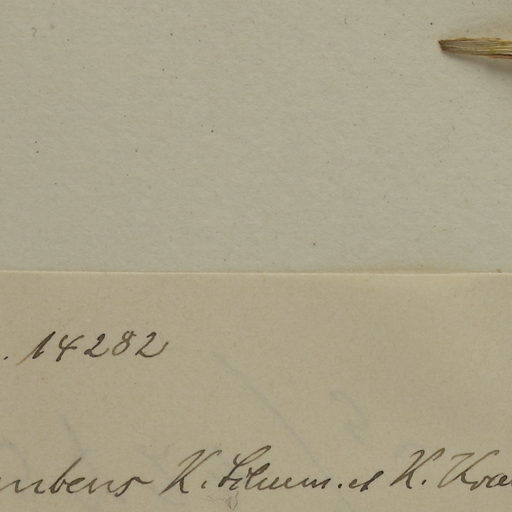 . 14282
mbens K. Schum. et K. Kra